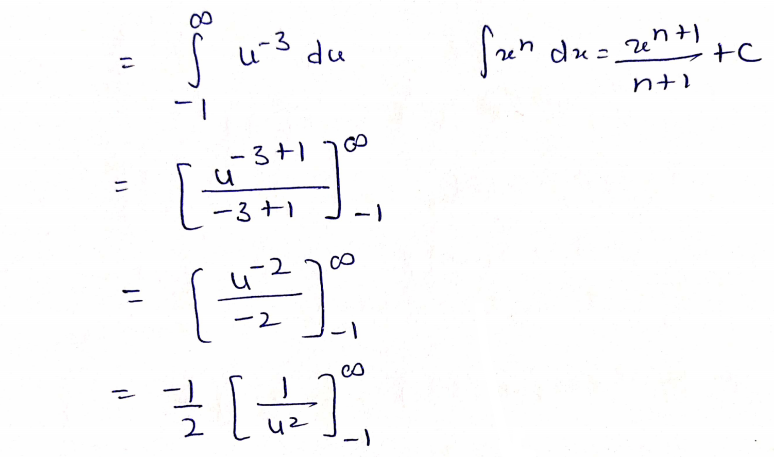 = ∫_{-1}^{∞} u^{-3} du    ∫x^n dx = \frac{x^{n+1}}{n+1} + C
= [\frac{u^{-3+1}}{-3+1}]_{-1}^{∞}
= [\frac{u^{-2}}{-2}]_{-1}^{∞}
= \frac{-1}{2} [\frac{1}{u^2}]_{-1}^{∞}